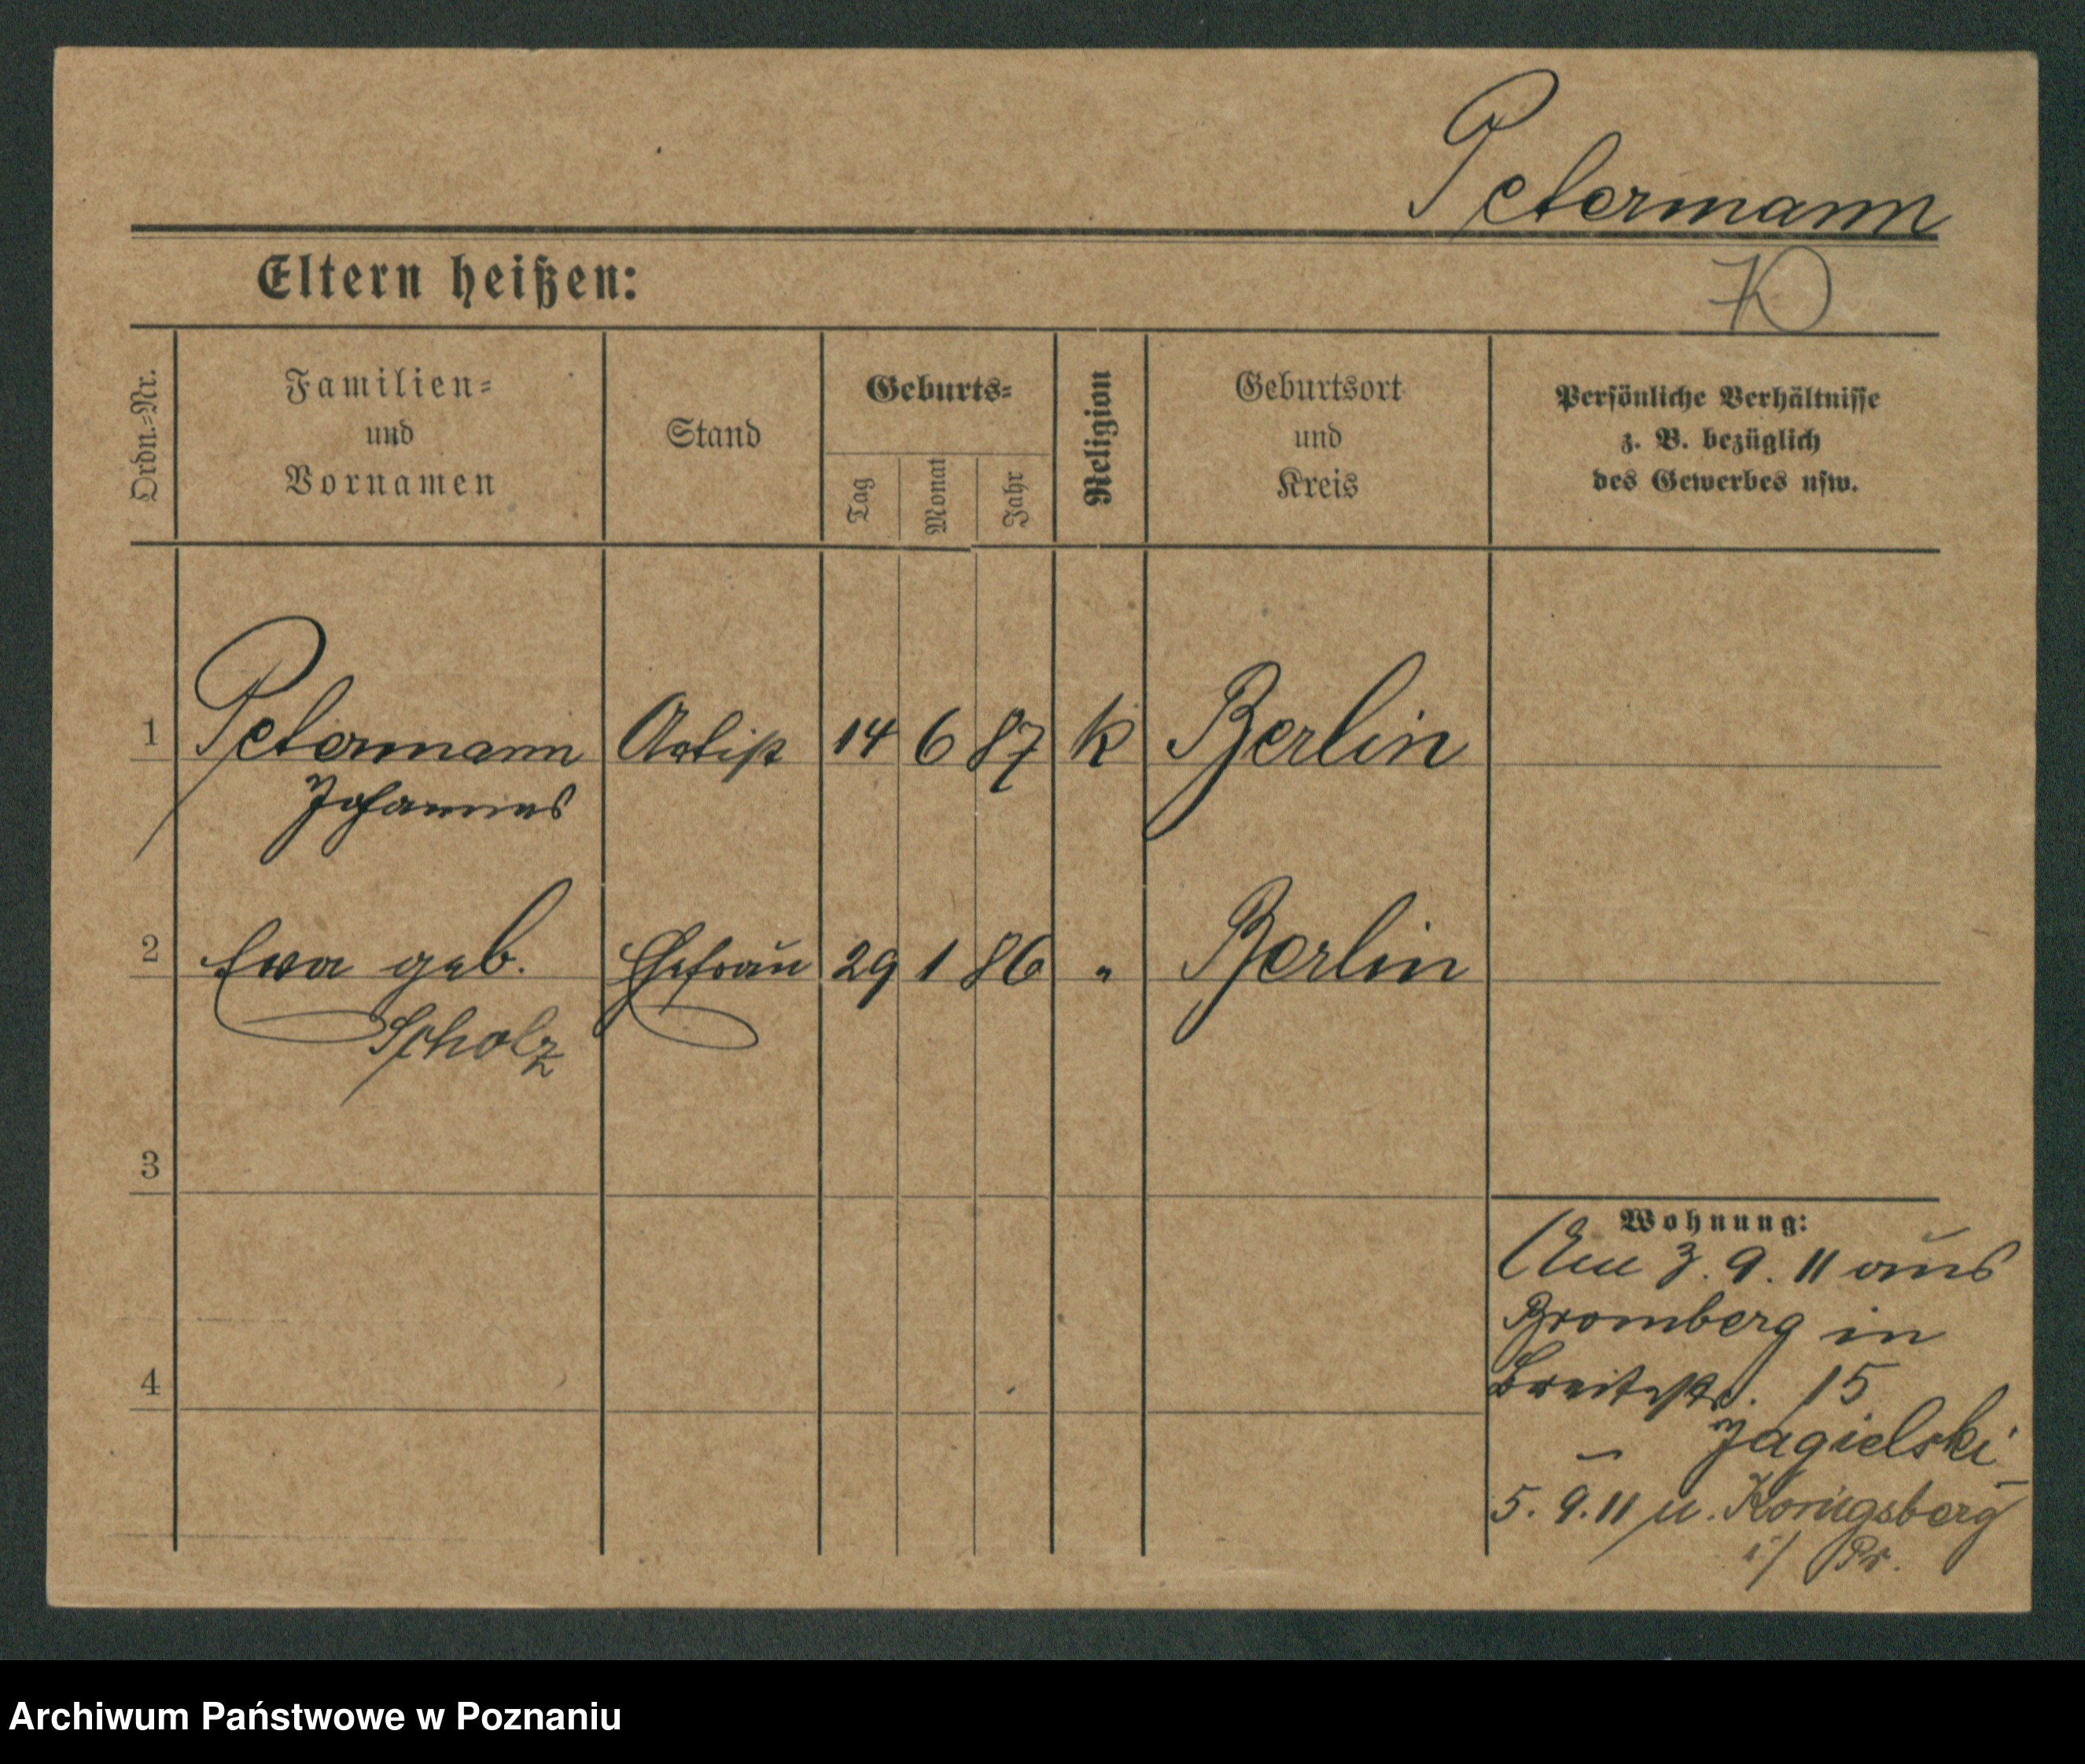 Petermann
Eltern heißen:
Ordn.=Nr.
Familien=
und
Vornamen
Stand
Geburts=
Tag
Monat
Jahr
Religion
Geburtsort
und
Kreis
Persönliche Verhältnisse
z. B. bezüglich
des Gewerbes usw.
1 Petermann Artist 14 6 87 k Berlin
Johannes
2 Ewa geb. Ehefrau 29 1 86 " Berlin
Scholz
3
Wohnung:
Am 3. 9. 11 aus
Bromberg in
4 Breitestr. 15
– Jagielski –
5. 9. 11 n. Königsberg
i/ Pr.
Archiwum Państwowe w Poznaniu